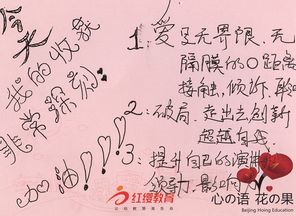 今天
我的收获
非常深刻
加油!!!
1:爱是无界限,无
隔膜的0距离
接触,倾诉,聆
2:破局.走出去创新
超越自我
3:提升自己的演讲
领导.影响力
红缨教育
心の语 花の果
Beijing Hoing Education